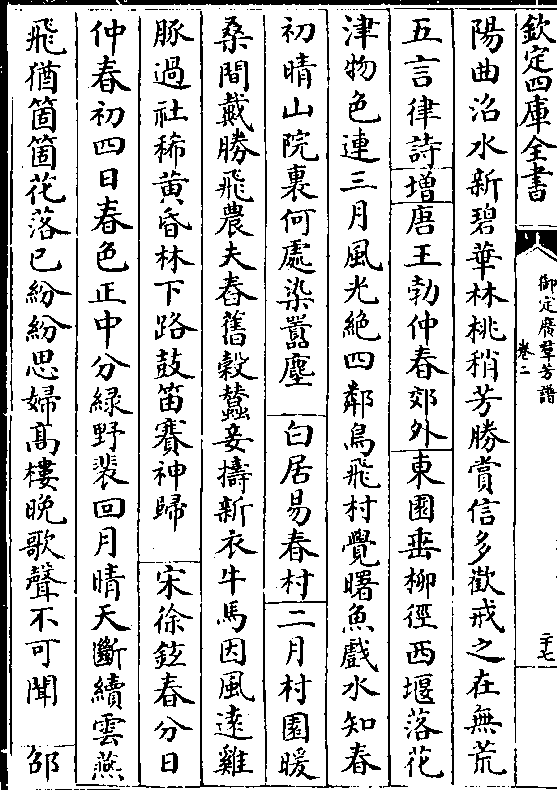 欽定四庫全書
御定廣羣芳譜
卷二
二十七
陽曲沼水新碧華林桃稍芳勝賞信多歡戒之在無荒
五言律詩增唐王勃仲春郊外東園垂柳徑西堰落花
津物色連三月風光絶四鄰鳥飛村覺曙魚戲水知春
初晴山院裏何處染囂塵白居易春村二月村園暖
桑間戴勝飛農夫舂舊穀蠶妾擣新衣牛馬因風逺雞
豚過社稀黄昏林下路鼓笛賽神歸宋徐鉉春分日
仲春初四日春色正中分緑野裴回月晴天斷續雲燕
飛猶箇箇花落已紛紛思婦髙樓晚歌聲不可聞邵